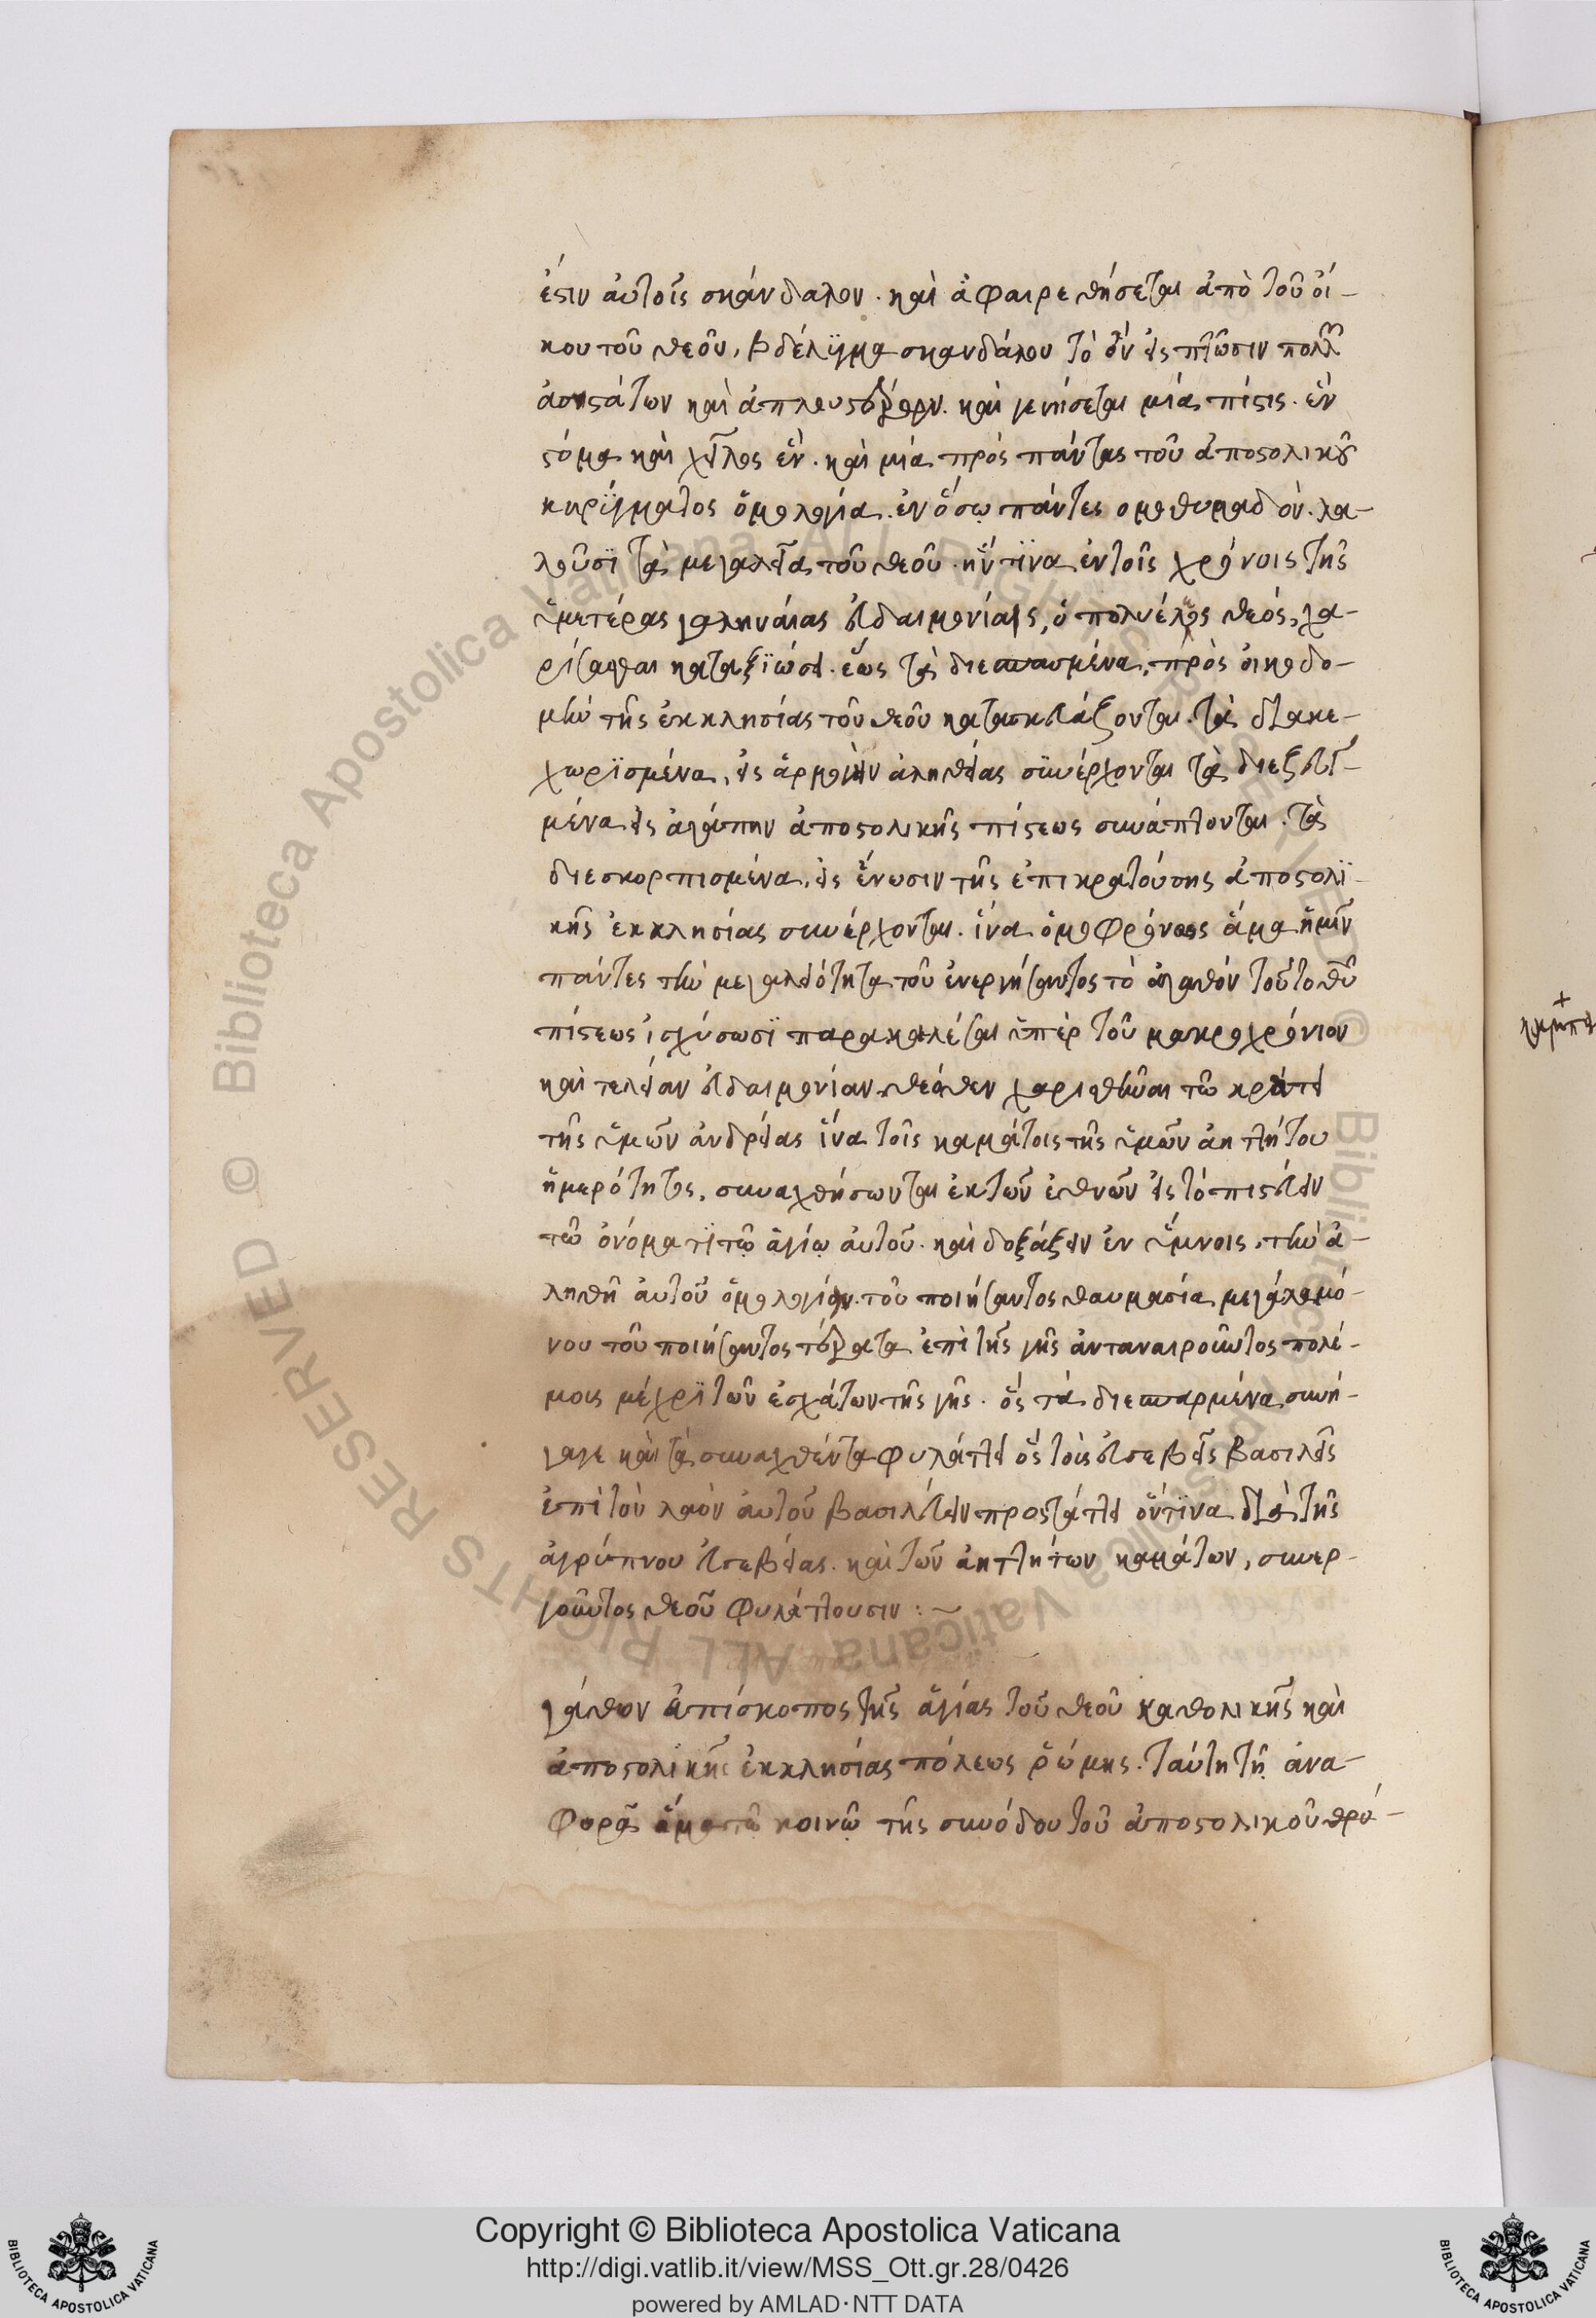 ἔστιν αὐτοῖς σκάνδαλον. καὶ ἀφαιρεθήσεται ἀπὸ τοῦ οἴ-
κου τοῦ θεοῦ, βδέλϋγμα σκανδάλου τὸ ὂν εἰς πτῶσιν πολλ
καὶ γενήσεται μία πίστις. ἓν
στόμα καὶ χεῖλος ἕν. καὶ μία πρὸς πάντας τοῦ ἀποστολικοῦ
κηρύγματος ὁμολογία. ἐν ὅσῳ πάντες ομοθυμαδόν. λα-
λοῦσϊ τὰ μεγαλεῖα τοῦ θεοῦ. ἥντϊνα ἐν τοῖς χρόνοις τῆς
ὑμετέρας γαληναίας εὐδαιμονίας, ὁ πολυέλεος θεός, χα-
ρίσασθαι καταξϊώσει. ἕως τὰ διεσπασμένα, πρὸς οἰκοδο-
μὴν τῆς ἐκκλησίας τοῦ θεοῦ κατασκευάζονται. τὰ διακε-
χωρϊσμένα, εἰς ἁρμογὴν ἀληθείας σϋνέρχονται τὰ διεζευγ-
μένα εἰς ἀγάπην ἀποστολικῆς πίστεως συνάπτονται. τὰ
διεσκορπισμένα, εἰς ἕνωσιν τῆς ἐπικρατούσης ἀποστολϊ-
κῆς ἐκκλησίας συνέρχονται. ἵνα ὁμοφρόνως ἅμα ἡμῖν
πάντες τὴν μεγαλειότητα τοῦ ἐνεργήσαντος τὸ ἀγαθὸν τοῦτο
πίστεως ἰσχύσωσϊ παρακαλέσαι ὑπὲρ τοῦ μακροχρόνιον
καὶ τελείαν εὐδαιμονίαν θεόθεν χαρισθῆναι τῶ κράτει
τῆς ὑμῶν ἀνδρείας ἵνα τοῖς καμάτοις τῆς ὑμῶν ἀηττήτου
ἡμερότητος, συναχθήσωνται ἐκ τῶν ἐθνῶν εἰς τὸ πιστεύειν
τῶ ὀνόματϊ τῷ ἁγίῳ αὐτοῦ. καὶ δοξάζειν ἐν ὕμνοις, τὴν ἀ-
ληθῆ αὐτοῦ ὁμολογίαν. τοῦ ποιήσαντος θαυμασία μεγάλα μό-
νου τοῦ ποιήσαντος τέρατα ἐπὶ τῆς γῆς ἀνταναιροῦντος πολέ-
μοις μέχρϊ τῶν ἐσχάτων τῆς γῆς. ὃς τὰ διεσπαρμένα συνή-
γαγε καὶ τὰ συναχθέντα φυλάττει ὃς τοὺς εὐσεβεῖς βασιλεῖς
ἐπὶ τὸν λαὸν αὐτοῦ βασιλεύειν προστάττει ὅντϊνα διὰ τῆς
ἀγρύπνου εὐσεβείας. καὶ τῶν ἀηττήτων καμάτων, συνερ-
γοῦντος θεοῦ φυλάττουσιν :~
γάθων ἐπίσκοπος τῆς ἁγίας τοῦ θεοῦ καθολικῆς καὶ
ἀποστολικῆς ἐκκλησίας πόλεως ῥώμης. ταύτη τῇ ἀνα-
φορᾶ ἅμα τῶ κοινῷ τῆς συνόδου τοῦ ἀποστολικοῦ θρό-
Copyright © Biblioteca Apostolica Vaticana
http://digi.vatlib.it/view/MSS_Ott.gr.28/0426
powered by AMLAD·NTT DATA
BIBLIOTECA APOSTOLICA VATICANA
BIBLIOTECA APOSTOLICA VATICANA
Biblioteca Apostolica Vaticana ALL RIGHTS RESERVED ©